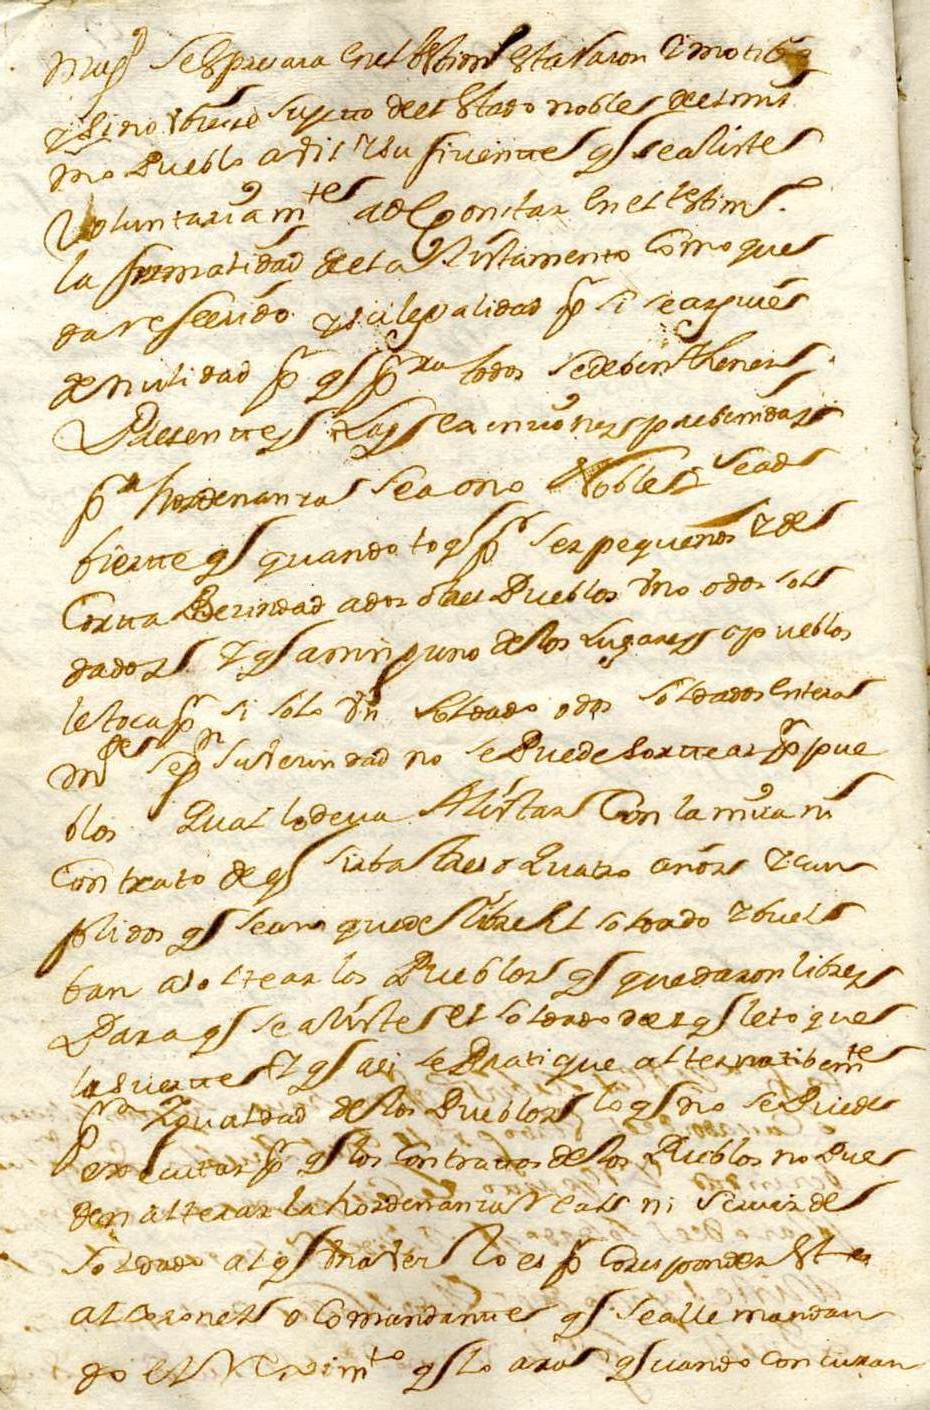 mas se espresara en el testim.º esta raron i motibo
y si no ubiese sujeto de el estado noble de el mis
mo Pueblo adil su siruente q se aliste
Voluntariam.tes a de Constar en el testim.º
la formalidad de el alistamento Como que
da referido y si legalidad p si se arguie
de nulidad p q p.ra todos se deben thener
Presentes las ebenciones prebenidas
p.r hordenanza sea o no Noble sead
bierte q quando to q p.r ser pequeños y de
Corta Becindad a dos o tres Pueblos uno o dos sol
dados y q a ninguno de los Lugares o pueblos
le toca p si solo un soldado o dos soldados entera
m.tes se p.r su Vecindad no se Puede sortear p pue
blos qual lo deva Alistar Con la mira ni
Contrato de q sirba tres o quatro años y cun
plidos q sean quede libre el soldado y buel
ban a sortear los Pueblos q quedaron libres
Para q se aliste el soldado de el q le toque
la suerte y q asi se Pratique alternatibam.te
p.r la ygualdad de los Pueblos lo q no se Puede
executar p q los Contratos de los Pueblos no Pue
den alterar la hordenanza Real ni seruir de
soldado al q una Ves lo es p Coresponder este
al Coronel o Comandante q se alle mandan
do el Regim.to q lo ara quando concuran